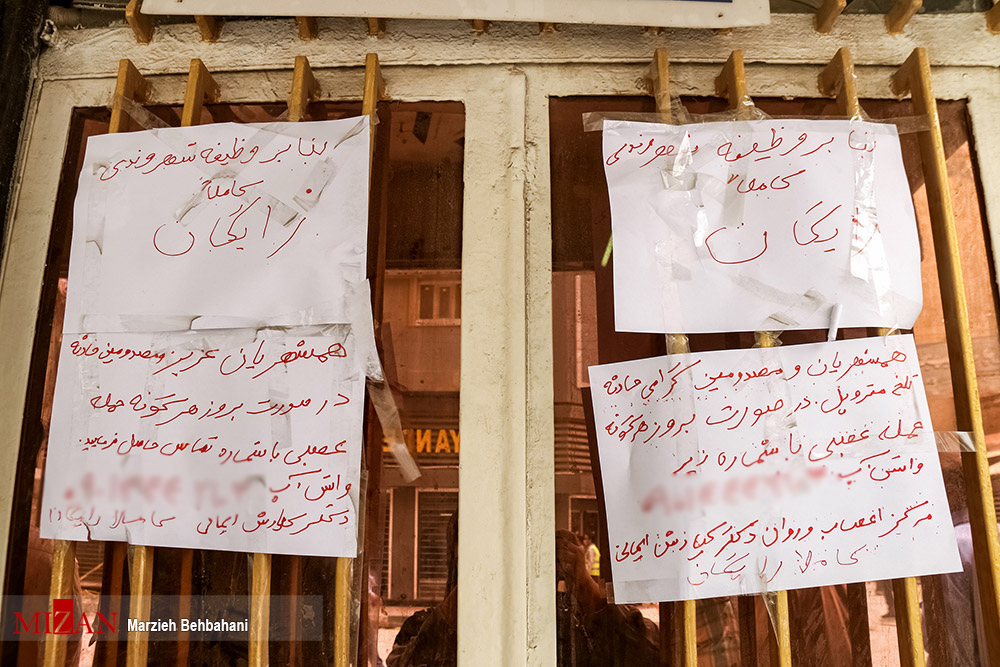 بنا بر وظیفه شهروندی
کاملاً
رایگان
همشهریان عزیز مصدومین حادثه
در صورت بروز هرگونه حمله
عصبی با شماره تماس حاصل فرمایید.
واتس آپ
دکتر ایمانی کاملا رایگان
بنا بر وظیفه شهروندی
کاملاً
یگان
همشهریان و مصدومین گرامی حادثه
تلخ متروپل. در صورت بروز هرگونه
حمله عصبی با شماره زیر
واتس آپ
مرکز اعصاب و روان دکتر ایمانی
کاملا رایگان
YAN
MIZAN
Marzieh Behbahani